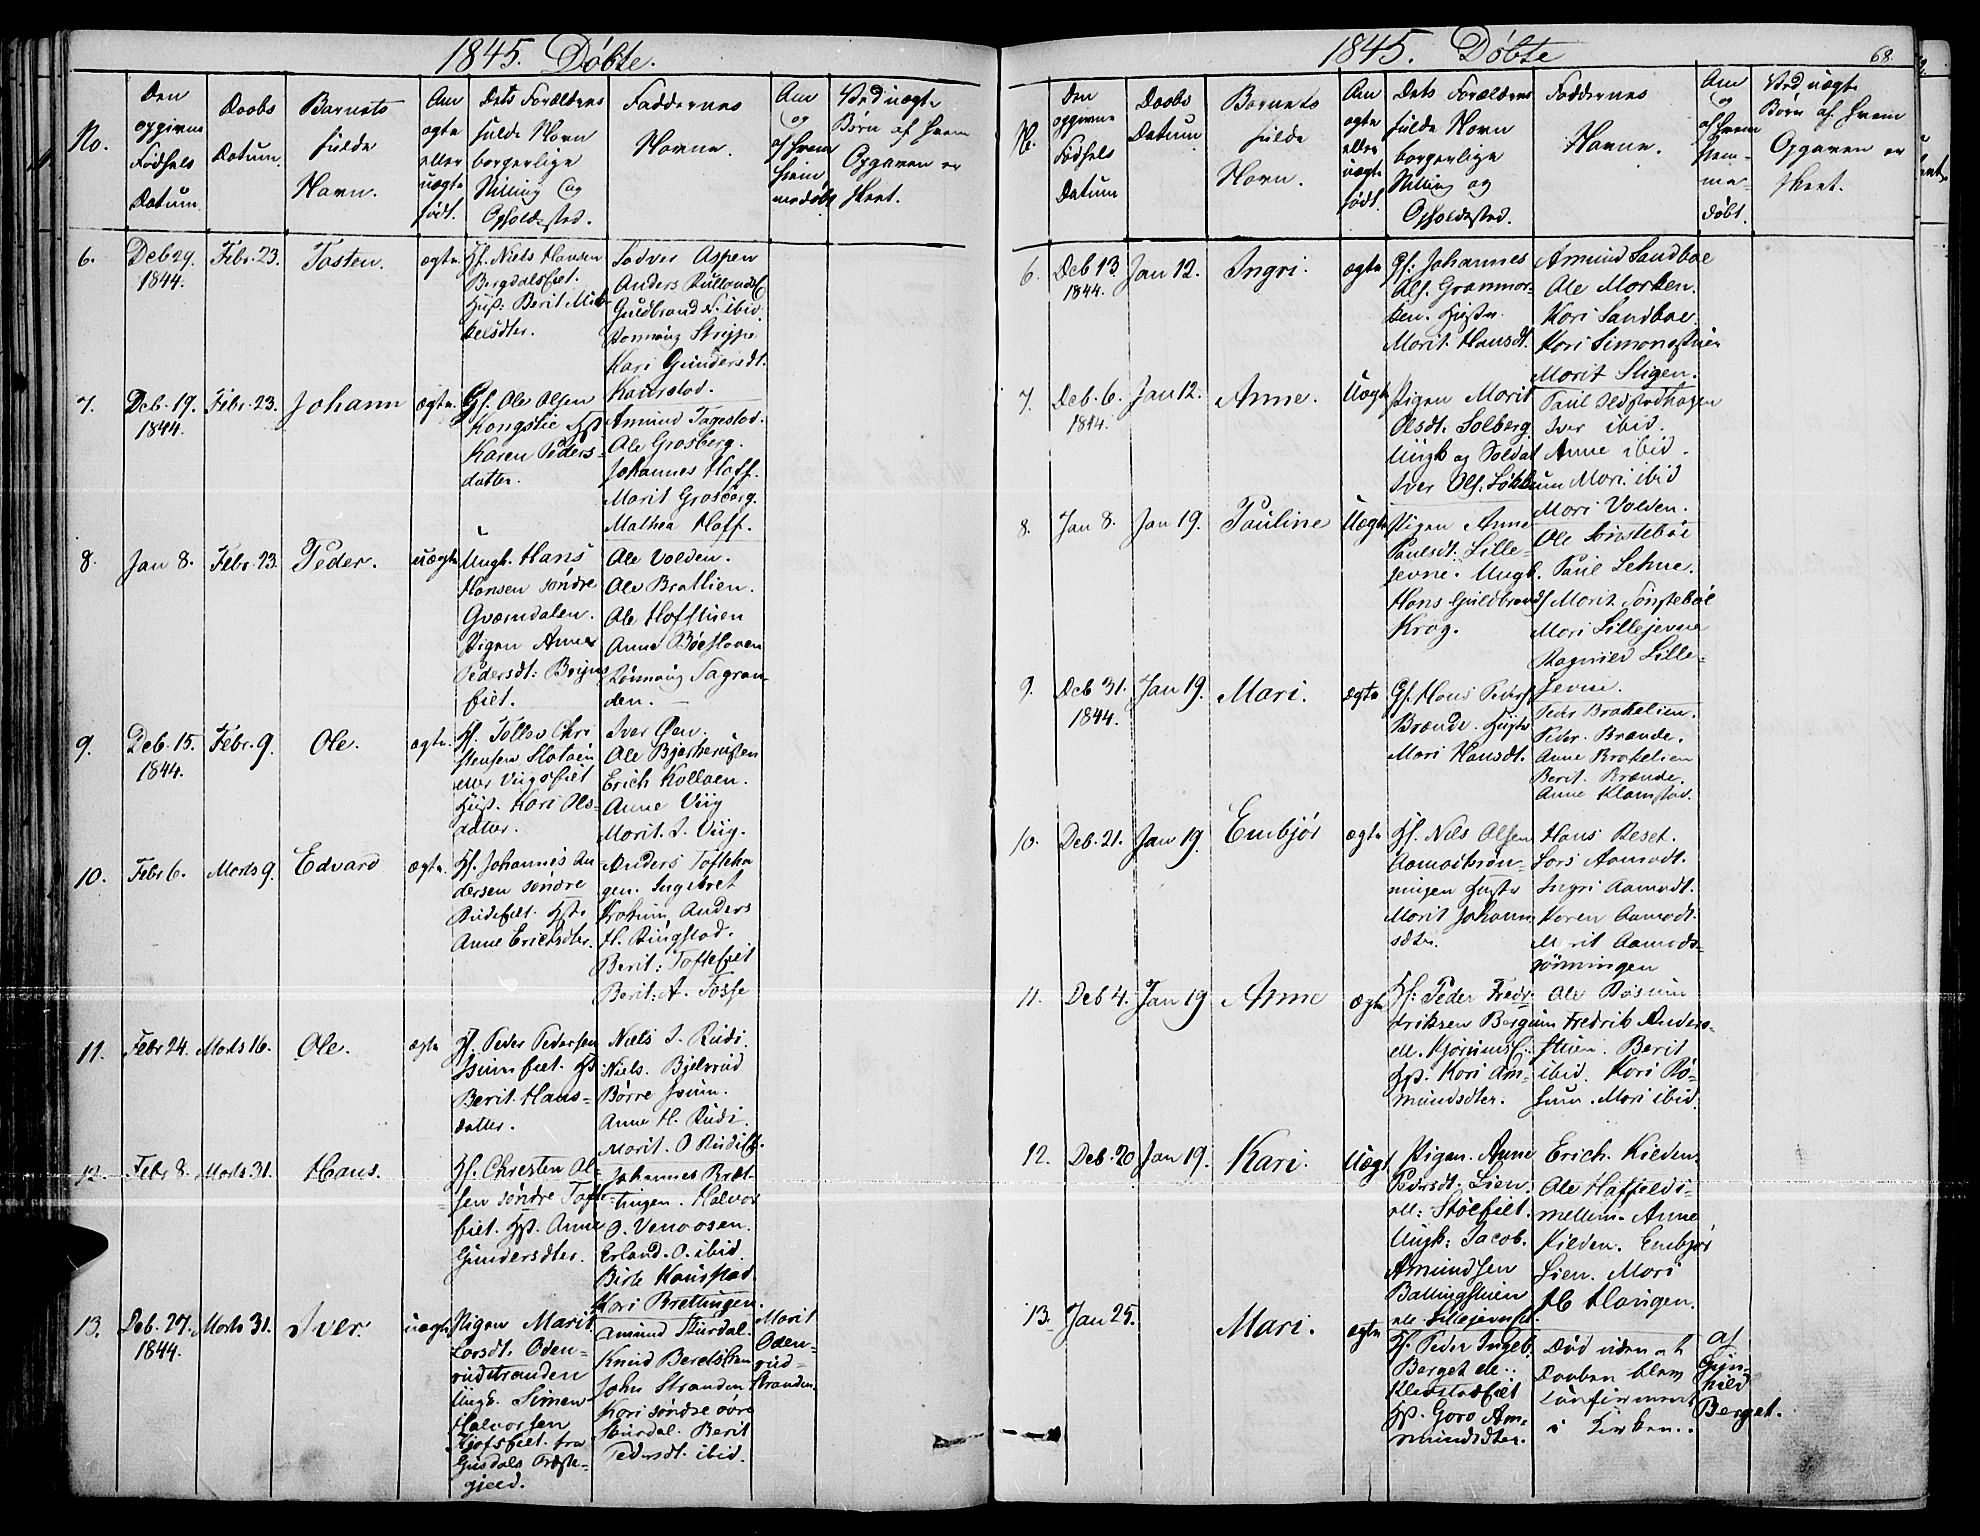 1845. Døbte.
No.
Den
opgivne
Fødsels
Datum.
Daabs
Datum.
Barnets
fulde
Navn.
Om
ægte
eller
uægte
født.
Dets Forældres
fulde Navn
borgerlige
Stilling og
Opholdssted.
Faddernes
Navne.
Om
og
af hvem
hjem
medøbt
Ved uægte
Børn af hvem
Opgaven er
skeet.
6.
Deb 29.
1844.
Febr. 23.
Tosten.
ægte
Hf. Niels Hansen
Bergdalsfiet.
Hus: Berit Mik-
kelsdter.
Sodver Aspen
Anders
Guldbrand N. ibid.
Rønnaug Strippe
Kari Gundersdt.
7.
Deb. 19.
1844.
Febr. 23.
Johann
ægte.
Gf. Ole Olsen
Kongslie Hst
Karen Peders-
datter.
Amund Fagestad.
Ole Grosberg.
Johannes Hoff.
Marit Grosberg.
Mathea Hoff.
8.
Jan 8.
Febr. 23.
Peder.
uægte
Ungk. Hans
Hansen søndre
Gvarndalen.
Pigen Anne
Pedersdt: Bryns
fiet.
Ole Volden.
Ole Brattien.
Ole Hoffstuen
Anne Bøeshoven
Rønnaug Sagran-
den.
9.
Deb. 15.
1844.
Febr. 9.
Ole.
ægte.
Hf. Tollev Chri
stensen Slotøen
eller Viigsfiet
Hust. Kari Ols-
datter.
Iver Øen.
Ole Bjerkerusten
Erich Kolloen.
Anne Viig
Marit. I. Viig.
10.
Febr 6.
Marts 9.
Edvard
ægte.
Hf. Johannes An
dersen søndre
Rudifiet. Hst.
Anne Erichsdter.
Anders Tofteha
gen. Ingebret
Anders
H. Ringstad.
Berit: Toftefiet
Berit: A. Fosse
11.
Febr 24.
Marts 16.
Ole.
ægte
Hf. Peder Pedersen
Isumfiet. Hst
Berit. Hans-
datter.
Niels I. Rudi.
Niels. Bjelvrud
Børre Isum.
Anne H. Rudi.
Marit. O Rudi
12.
Febr 8.
Marts. 31.
Hans.
Hf. Christen Ol-
sen søndre Toft
fiet. Hst. Anne
Gundersdter.
Johannes Bræt-
tingen. Halvor
O. Venaasen.
Erland. O. ibid.
Birte Kaustad.
Kari Brettingen.
13.
Deb. 27.
1844.
Marts 31.
Iver.
uægte
Pigen Marit
Larsdt. Oden-
rudstranden
Ungk. Simen
Halvorsen
fra
Gusdals Præste-
gjeld.
Amund Sturdal.
Knud Beretslien
John Stranden
Kari søndre øvre
Sturdal. Berit
Pedersdt. ibid.
Marit
Oden-
rud-
stranden.
1845. Døbte
68.
N.
Den
opgivne
Fødsels
Datum
Daabs
Datum.
Barnets
fulde
Navn.
Om
ægte
eller
uægte
født.
Dets Forældres
fulde Navn
borgerlige
Stilling og
Opholdssted.
Faddernes
Navne.
Om
og
af hvem
hjem-
me-
døbt.
Ved uægte
Børn af hvem
Opgaven er
skeet.
6.
Deb 13.
1844.
Jan 12.
Ingri.
ægte
Gf: Johannes
Ols. Granmor-
ken. Hustr.
Marit Hansdt.
Amund Sandboe
Ole Morken.
Kari Sandboe.
Kari Simonstuen
Marit Stigen.
7.
Deb. 6.
1844.
Jan 12.
Anne.
Uægte
Pigen Marit
Olsdt. Solberg
Ungk og Soldat
Iver Ols: Løkk
Paul
Iver ibid.
Anne ibid.
Mari ibid
Mari Volden.
8.
Jan 8.
Jan 19.
Pauline
Uægte
Pigen Anne
Paulsdt. Lille-
jevne. Ungk.
Hans Guldbrands
Krog.
Ole Sønstebøe
Paul Lehne.
Marit Sønstebøe
Mari Lillejevne
Ragnild Lille-
jevne.
9.
Deb 31.
1844.
Jan 19.
Mari.
ægte
Gf. Hans Peders
Brænde. Hustr
Mari Hansdt.
Peder Brakelien.
Peder. Brænde.
Anne Brakelien
Berit. Brænde.
Anne Klomstad.
10.
Deb. 21.
Jan 19.
Embjør
ægte
Hf. Niels Olsen
Aamodtsrøn-
ningen Hustr
Marit Johann
sdter.
Hans Reset.
Lars Aamodt.
Ingri Aamodt.
Karen Aamodt.
Marit Aamods-
rønningen
11.
Deb 4.
Jan 19
Anne
Ægte
Hf: Peder Fredr.
driksen Bergum
ell. Kjørumsf.
Hst. Kari Am-
mundsdter.
Ole Røsum
Fredrik Anders-
stuen. Berit
ibid. Kari Rø-
sum. Mari ibid.
12.
Deb. 20
Jan 19.
Kari.
Uægt
Pigen. Anne
Pedersdt. Lien.
ell: Støefiet.
Ungk: Jacob.
Amundsen
Ballingstuen
ell. Lillejevnsf.
Erich. Kilden.
Ole Haffieldi-
mellem. Anne
Kilden. Embjør
Lien. Mari
H. Haugen.
13.
Jan 25.
Mari.
ægte
Hf. Peder Ingeb.
Berget ell:
Klevstadfiet
Hst. Goro Am-
mundsdter.
Død uden at
Daaben blev
confirmeret
i Kirken.
af
Gun-
hild
Berget.